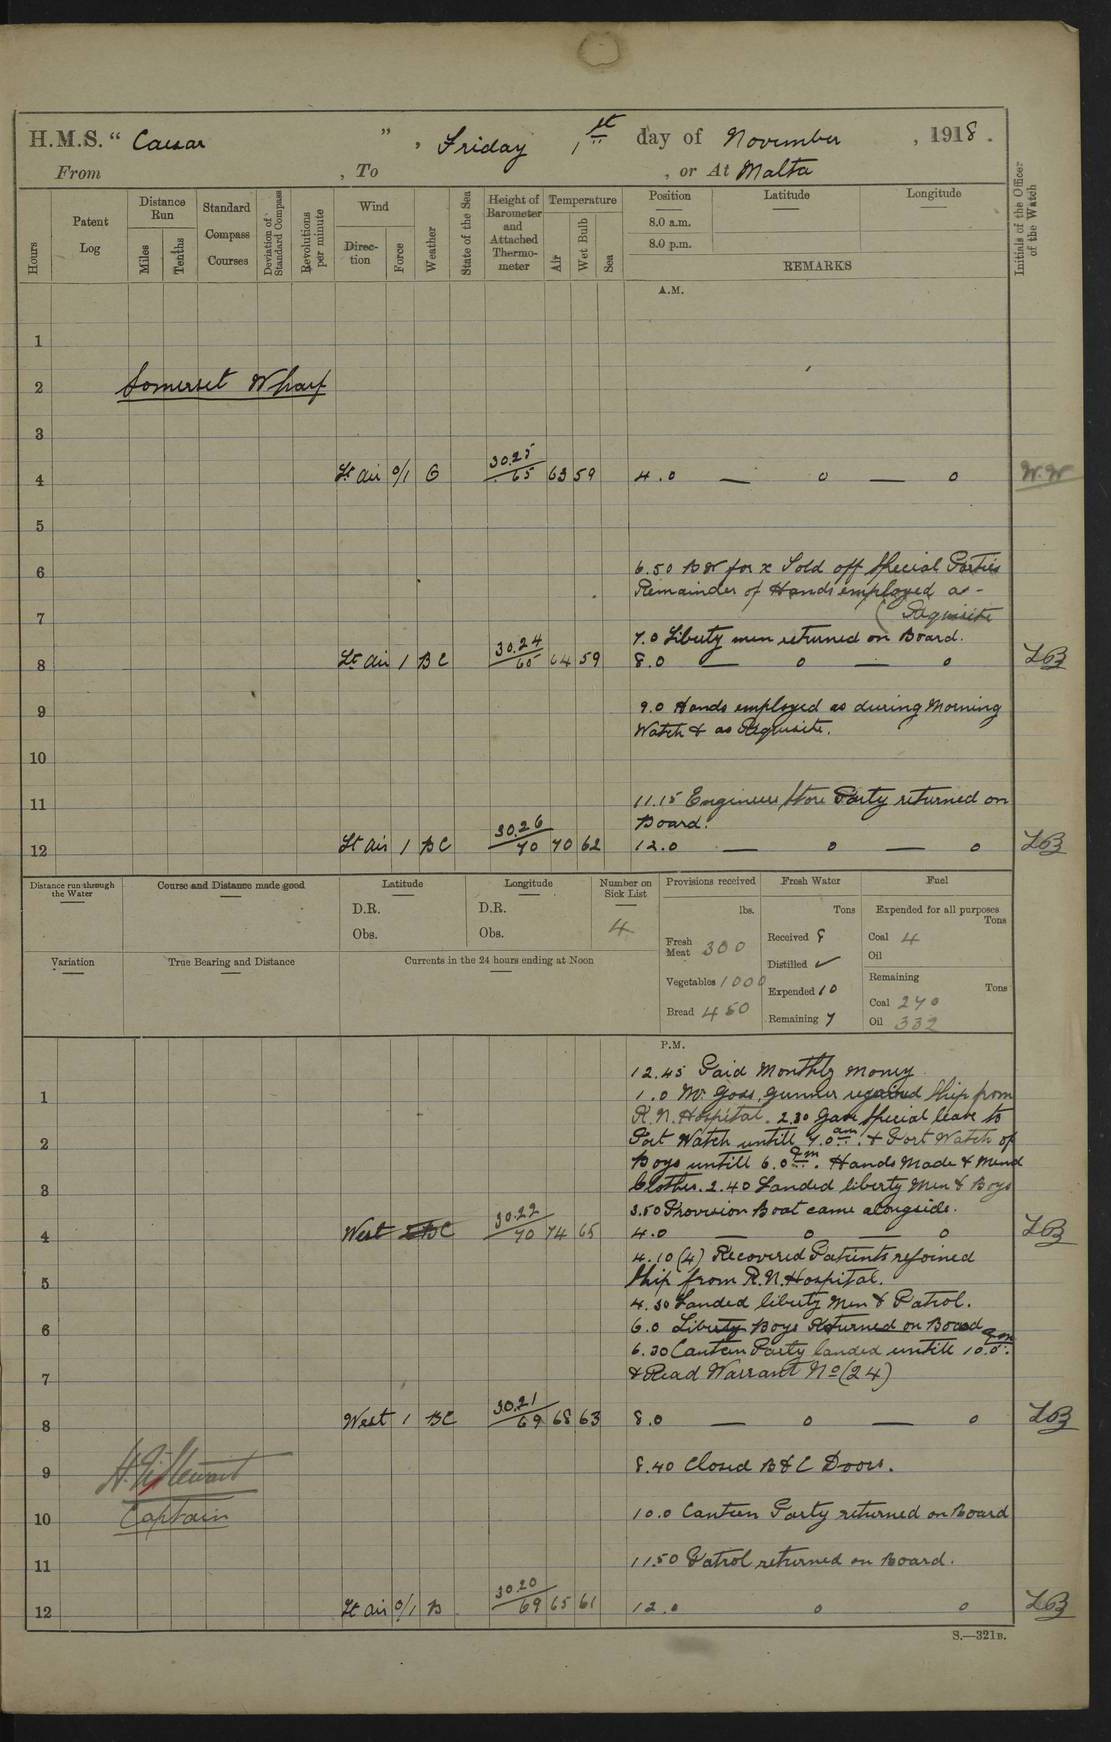 H.M.S. " Caesar ", Friday 1st day of November, 1918.
From , To , or At Malta
Hours
Patent Log
Distance Run
Miles
Tenths
Standard Compass Courses
Deviation of Standard Compass
Revolutions per minute
Wind
Direction
Force
Weather
State of the Sea
Height of Barometer and Attached Thermometer
Temperature
Air
Wet Bulb
Sea
Position
8.0 a.m.
8.0 p.m.
Latitude
Longitude
REMARKS
Initials of the Officer of the Watch
A.M.
1
2 Somerset Wharf
3
4 Lt Air 0/1 30.25/65 63 59 4.0 — 0 — 0 W.W
5
6 6.50 for Told off Special Parties
Remainder of Hands employed as -
7 Requisite
7.0 Liberty men returned on Board.
8 Lt Air 1 BC 30.24/65 64 59 8.0 — 0 — 0 LB
9 9.0 Hands employed as during Morning
Watch & as Requisite.
10
11 11.15 Engineers Store Party returned on
Board.
12 Lt Air 1 BC 30.26/70 70 62 12.0 — 0 — 0 LB
Distance run through the Water
Course and Distance made good
Latitude
D.R.
Obs.
Longitude
D.R.
Obs.
Number on Sick List
4
Provisions received
lbs.
Fresh Meat 300
Vegetables 1000
Bread 450
Fresh Water
Tons
Received 8
Distilled ✓
Expended 10
Remaining 7
Fuel
Expended for all purposes
Tons
Coal 4
Oil
Remaining
Tons
Coal 270
Oil 332
Variation
True Bearing and Distance
Currents in the 24 hours ending at Noon
P.M.
12.45 Paid Monthly money
1 1.0 Mr. Goss, Gunner regained Ship from
R.N. Hospital. 2.30 Gave Special leave to
2 Port Watch untill 7.0 am. & Port Watch of
Boys untill 6.0 pm. Hands Made & Mend
3 Clothes. 2.40 Landed liberty Men & Boys
3.50 Provision Boat came alongside.
4 West BC 30.22/70 74 65 4.0 — 0 — 0 LB
4.10 (4) Recovered Patients rejoined
5 Ship from R.N. Hospital.
4.30 Landed liberty Men & Patrol.
6 6.0 Liberty Boys Returned on Board
6.30 Canteen Party landed untill 10.0 pm.
7 & Read Warrant No (24)
8 West 1 BC 30.21/69 68 63 8.0 — 0 — 0 LB
9 8.40 Closed B & C Doors.
Captain
10 10.0 Canteen Party returned on Board
11 11.50 Patrol returned on Board.
12 Lt Air 0/1 B 30.20/69 65 61 12.0 0 0 LB
S.—321B.